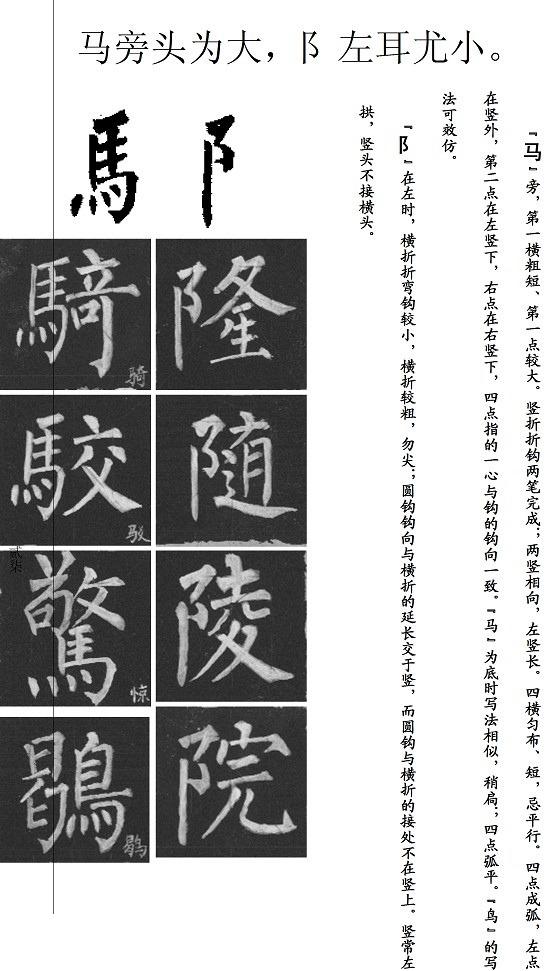 马旁头为大，阝左耳尤小。
『马』旁，第一横粗短、第一点较大。竖折折钩两笔完成；两竖相向，左竖长。四横匀布、短，忌平行。四点成弧，左点
在竖外，第二点在左竖下，右点在右竖下，四点指的一心与钩的钩向一致。『马』为底时写法相似，稍扁；四点弧平。『鸟』的写
法可效仿。
『阝』在左时，横折折弯钩较小，横折较粗，勿尖；圆钩钩向与横折的延长交于竖，而圆钩与横折的接处不在竖上。竖常左
拱，竖头不接横头。
馬
阝
騎
骑
隆
駮
驳
随
驚
惊
陵
鶡
鹖
院
贰柒